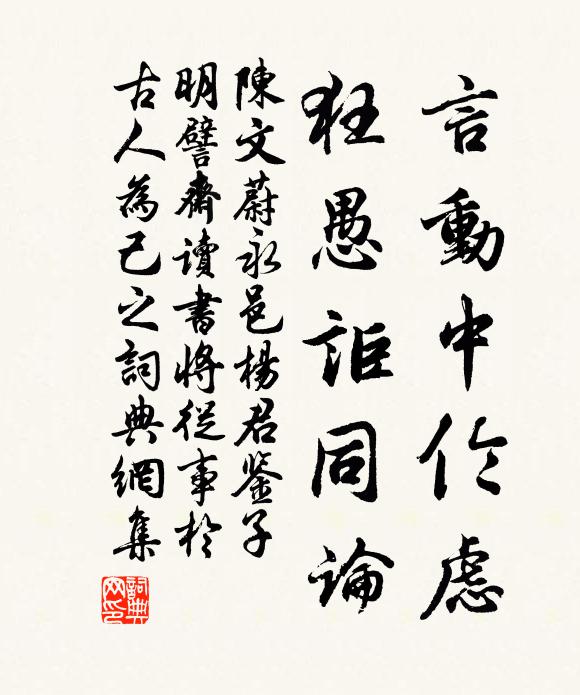 言動中倫慮
狂愚詎同論
陳文蔚永邑楊君鉴子
明譬齋讀書將從事於
古人為己之詞典網集